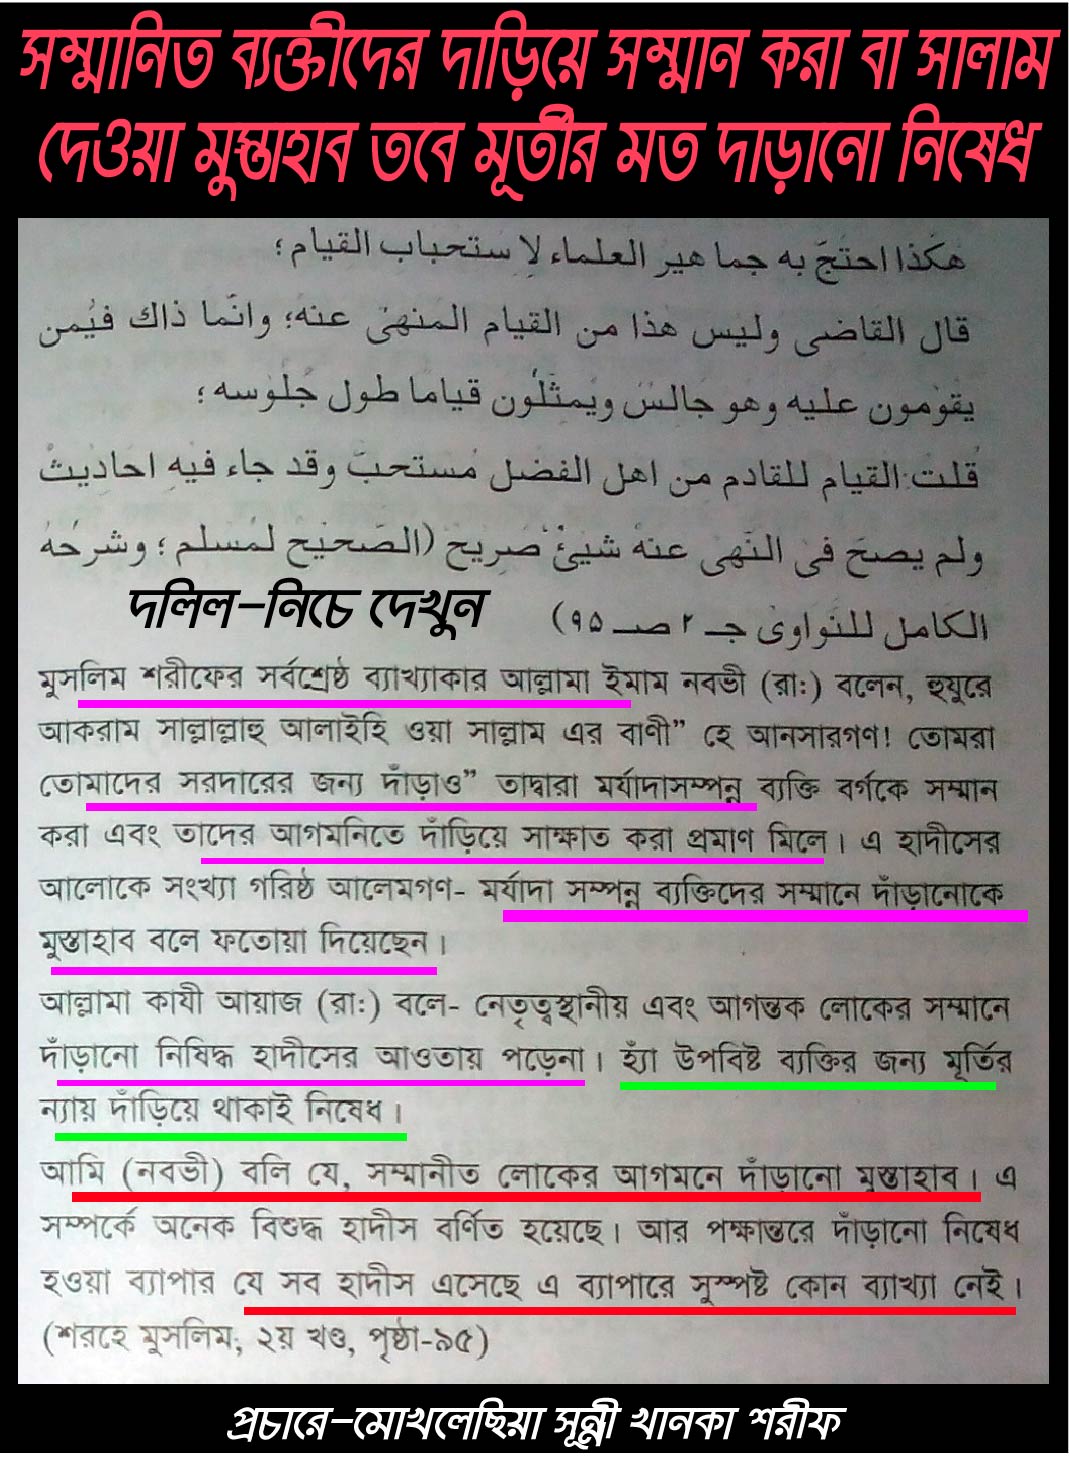 সম্মানিত ব্যক্তীদের দাড়িয়ে সম্মান করা বা সালাম
দেওয়া মুস্তাহাব তবে মূর্তীর মত দাড়ানো নিষেধ
هكذا احتجّ به جما هير العلماء لا ستحباب القيام ؛
قال القاضى وليس هذا من القيام المنهىّ عنه؛ وانّما ذاك فيمن
يقومون عليه وهو جالس ويمثلون قياما طول جلوسه ؛
قلت: القيام للقادم من اهل الفضل مستحبّ وقد جاء فيه احاديث
ولم يصحّ فى النّهى عنه شيئ صريح (الصّحيح لمسلم ؛ وشرحه
الكامل للنواوى جـ ٢ صـ ٩٥)
দলিল-নিচে দেখুন
মুসলিম শরীফের সর্বশ্রেষ্ঠ ব্যাখ্যাকার আল্লামা ইমাম নবভী (রাঃ) বলেন, হুযুরে
আকরাম সাল্লাল্লাহু আলাইহি ওয়া সাল্লাম এর বাণী” হে আনসারগণ! তোমরা
তোমাদের সরদারের জন্য দাঁড়াও” তাদ্বারা মর্যাদাসম্পন্ন ব্যক্তি বর্গকে সম্মান
করা এবং তাদের আগমনিতে দাঁড়িয়ে সাক্ষাত করা প্রমাণ মিলে। এ হাদীসের
আলোকে সংখ্যা গরিষ্ঠ আলেমগণ- মর্যাদা সম্পন্ন ব্যক্তিদের সম্মানে দাঁড়ানোকে
মুস্তাহাব বলে ফতোয়া দিয়েছেন।
আল্লামা কাযী আয়াজ (রাঃ) বলে- নেতৃত্বস্থানীয় এবং আগন্তক লোকের সম্মানে
দাঁড়ানো নিষিদ্ধ হাদীসের আওতায় পড়েনা। হ্যাঁ উপবিষ্ট ব্যক্তির জন্য মূর্তির
ন্যায় দাঁড়িয়ে থাকাই নিষেধ।
আমি (নবভী) বলি যে, সম্মানীত লোকের আগমনে দাঁড়ানো মুস্তাহাব। এ
সম্পর্কে অনেক বিশুদ্ধ হাদীস বর্ণিত হয়েছে। আর পক্ষান্তরে দাঁড়ানো নিষেধ
হওয়া ব্যাপার যে সব হাদীস এসেছে এ ব্যাপারে সুস্পষ্ট কোন ব্যাখ্যা নেই।
(শরহে মুসলিম, ২য় খণ্ড, পৃষ্ঠা-৯৫)
প্রচারে-মোখলেছিয়া সূন্নী খানকা শরীফ